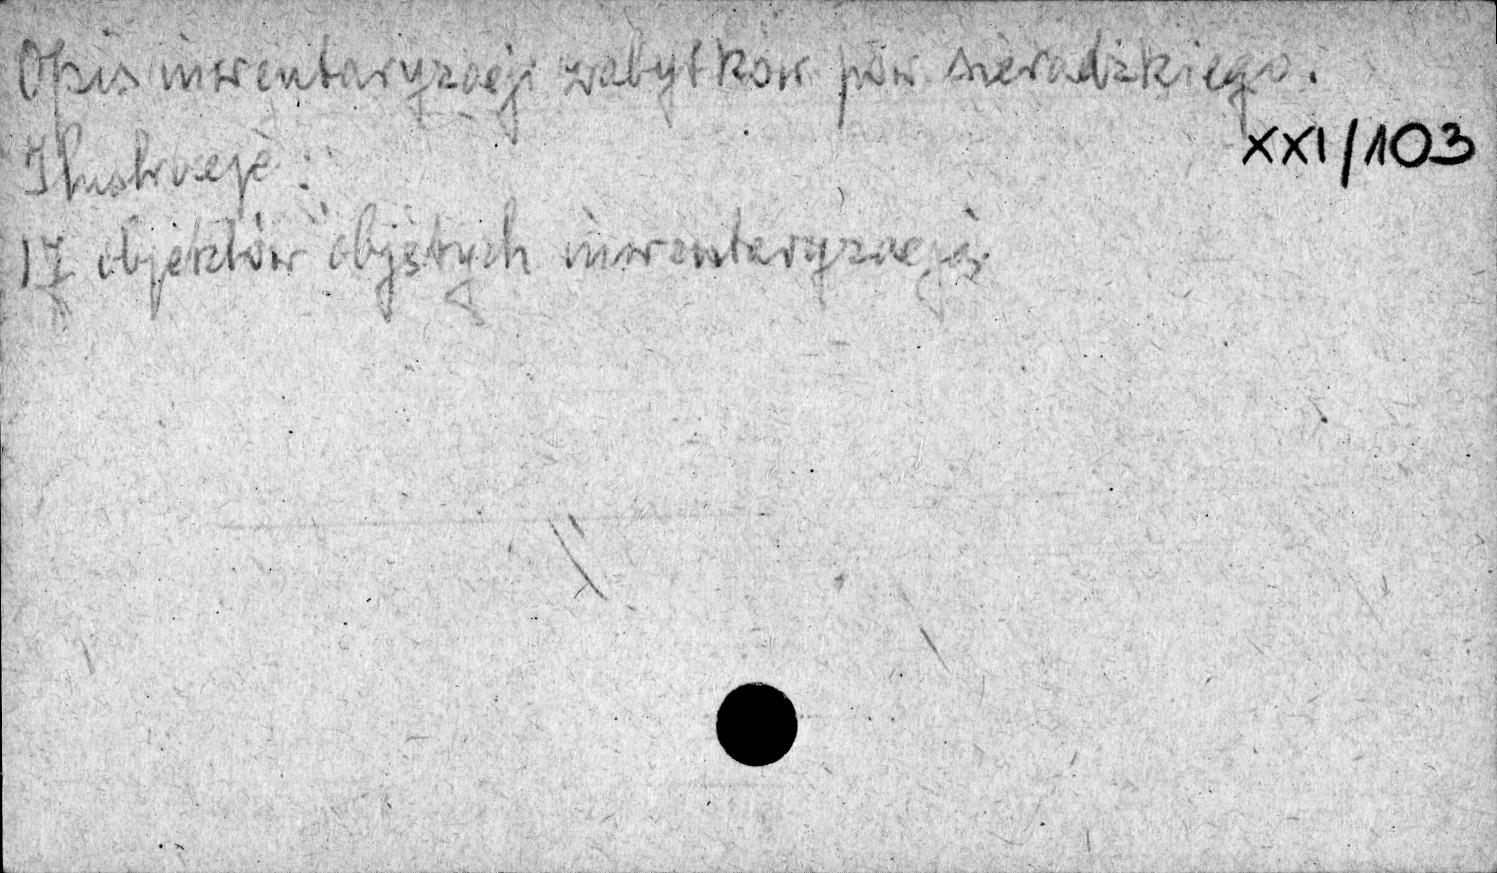 Opis inwentaryzacji zabytków pow sieradzkiego.
XXI/103
Ilustracje:
17 objektów objętych inwentaryzacją.